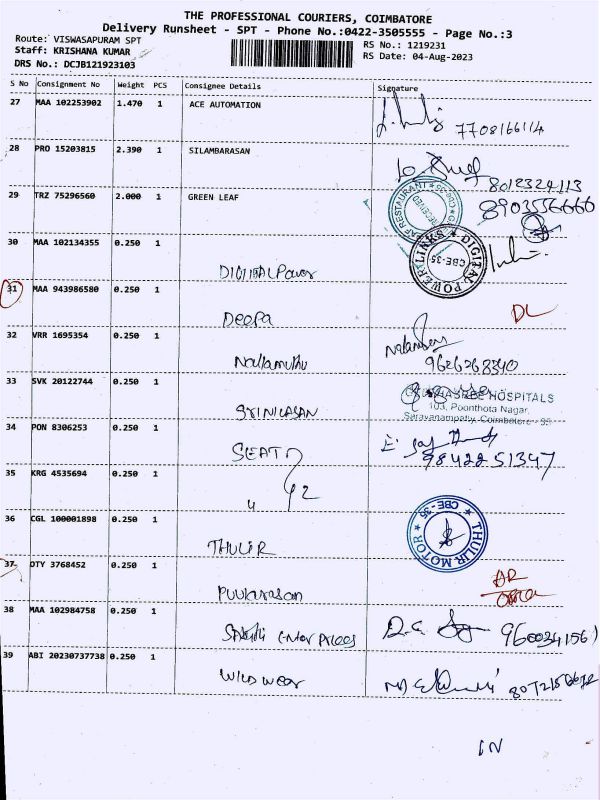 THE PROFESSIONAL COURIERS, COIMBATORE
Delivery Runsheet - SPT - Phone No.:0422-3505555 - Page No.:3
Route: VISWASAPURAM SPT
Staff: KRISHANA KUMAR
DRS No.: DCJB121923103
RS No.: 1219231
RS Date: 04-Aug-2023
S No Consignment No Weight PCS Consignee Details Signature
27 MAA 102253902 1.470 1 ACE AUTOMATION
7708166114
28 PRO 15203815 2.390 1 SILAMBARASAN
8012324113
29 TRZ 75296560 2.000 1 GREEN LEAF
8903556666
RESTAURANT
RECEIVED
30 MAA 102134355 0.250 1 DIGITAL Power
DIGITAL POWER LINKS
CBE-35
31 MAA 943986580 0.250 1 Deepa DL
32 VRR 1695354 0.250 1 Nallamuthu
9626268340
33 SVK 20122744 0.250 1 SRINIVASAN
HOSPITALS
103, Poonthota Nagar,
Saravanampatty, Coimbatore - 35
34 PON 8306253 0.250 1 SEAT
9842251347
35 KRG 4535694 0.250 1 42
36 CGL 100001898 0.250 1 THULIR
THULIR MOTOR
CBE-35
37 DTY 3768452 0.250 1
38 MAA 102984758 0.250 1
9600341561
39 ABI 20230737738 0.250 1 Wild wear
IN